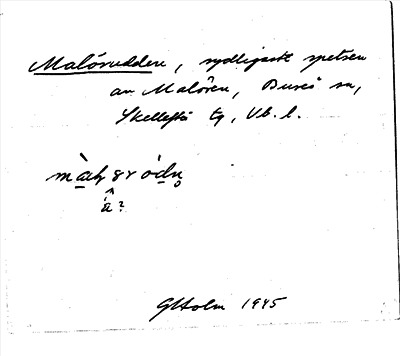 Malörudden, sydligaste spetsen
av Malören, Bureå sn,
Skellefteå tg, Vb. l.
â?
GHolm 1945